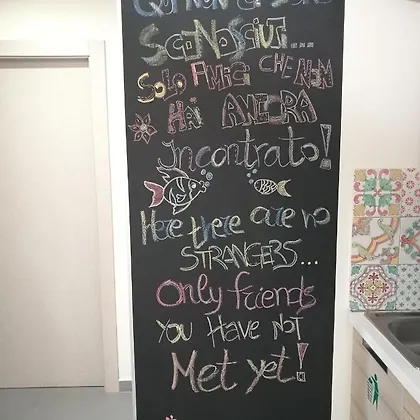 QUI NON CI SONO
SCONOSCIUTI....
SOLO AMICI CHE NON
HAI ANCORA
Incontrato!
Here there are no
STRANGERS...
Only friends
YOU HAVE NOT
MET yet!